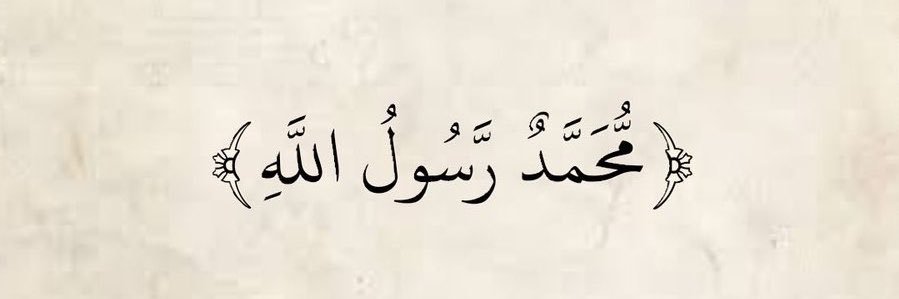 ﴿مُّحَمَّدٌ رَّسُولُ اللَّهِ﴾